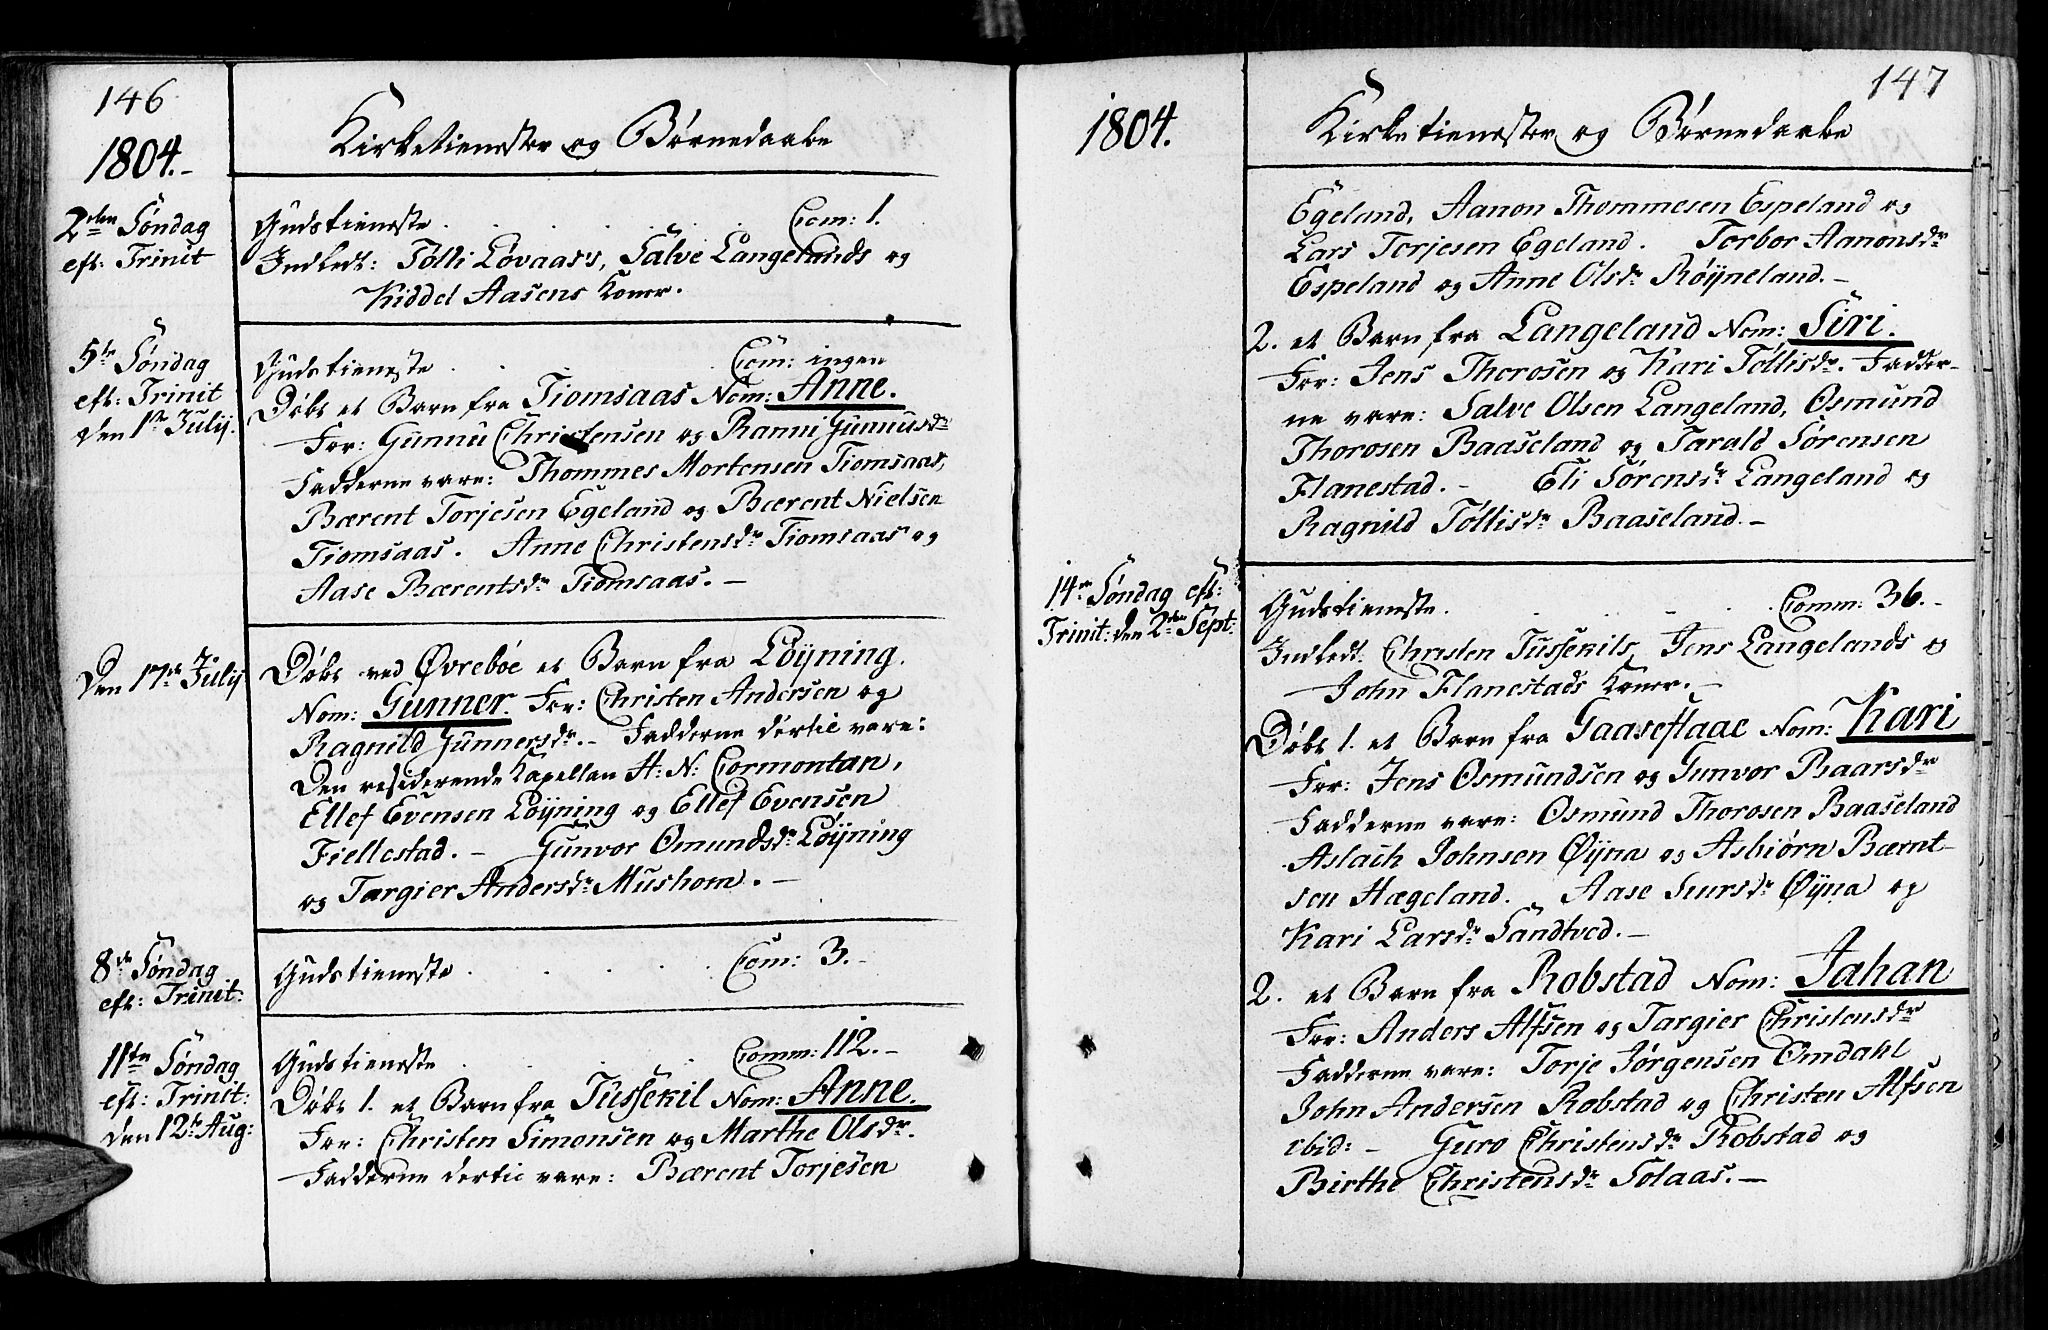 146
1804.-
Kirketienester og Børnedaabe
2den Søndag
eft: Trinit
Gudstieneste . . . . . Com: 1.
Indledt: Tolli Lovaass, Salve Langelands og
Kiddel Aasens Koner.
5te Søndag
eft: Trinit
den 1te Julij.
Gudstieneste . . . Com: ingen
Døbt et Barn fra Tiomsaas Nom: Anne.
For: Gunnu Christensen og Ranni Gunnusdr
Fadderne vare: Thommes Mortensen Tiomsaas,
Bærent Torjesen Egeland og Bærent Nielsen
Tiomsaas. Anne Christensdr Tiomsaas og
Aase Bærentsdr Tiomsaas. -
Den 17de Julij
Døbt ved Øvrebøe et Barn fra Löyning.
Nom: Gunner. For: Christen Andersen og
Ragnild Gunnersdr. - Fadderne dertil vare:
Den residerende Kapellan H: N: Cormontan,
Ellef Evensen Löyning og Ellef Evensen
Fiellestad. - Gunvor Omundsdr Löyning
og Targier Andersdr Mushom. -
8de Søndag
eft: Trinit:
Gudstieneste . . . . . Com: 3. -
11te Søndag
eft: Trinit:
den 12te Aug:
Gudstieneste . . . . Comm: 112. -
Døbt 1. et Barn fra Tussekil Nom: Anne.
For: Christen Simonsen og Marthe Olsdr.
Fadderne dertil vare: Bærent Torjesen
147
1804.
Kirketienester og Børnedaabe
Egeland, Aanon Thommesen Espeland og
Lars Torjesen Egeland. Torbor Aanonsdr
Espeland og Anne Olsdr Røyneland. -
2. et Barn fra Langeland Nom: Siri.
For: Jens Thorosen og Kari Tollisdr. Fadder-
ne vare: Salve Olsen Langeland, Osmund
Thorosen Baaseland og Tarald Sørensen
Flanestad. - Eli Sørensdr Langeland og
Ragnild Tollisdr Baaseland. -
14de Søndag eft:
Trinit: den 2den Sept:
Gudstieneste . . . . Comm: 36. -
Indledt. Christen Tussekils, Jens Langelands og
John Flanestads Koner. -
Døbt 1. et Barn fra Gaaseflaae Nom: Kari
For: Jens Osmundsen og Gunvor Baarsdr
Fadderne vare: Osmund Thorosen Baaseland
Aslach Johnsen Øyna og Asbiørn Bærnt-
sen Hægeland. Aase Siursdr Øyna og
Kari Larsdr Sandtved. -
2. et Barn fra Robstad Nom: Jahan
For: Anders Alfsen og Targier Christensdr
Fadderne vare: Torje Jørgensen Omdahl
John Andersen Robstad og Christen Alfsen
ibid: - Guro Christensdr Robstad og
Birthe Christensdr Solaas. -